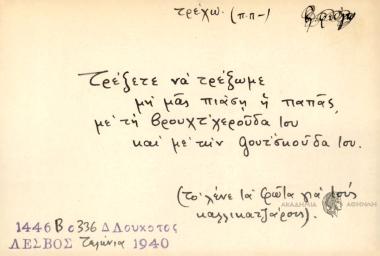 τρέχω. (π.π-)
Τρέξετε νὰ τρέξωμε
μὴ μᾶς πιάσῃ ἡ παπᾶς,
μὲ τὴ βρουχτ'χεροῦδα του
καὶ μὲ τὴν λουτσκούδα του.
(τὸ λένε τὰ Φῶτα γιὰ τοὺς
καλλικατζάρους).
1446 Β σ 336 Δ Λουκοτος
ΛΕΣΒΟΣ Τελώνια 1940
ΑΚΑΔΗΜΙΑ ΑΘΗΝΩΝ